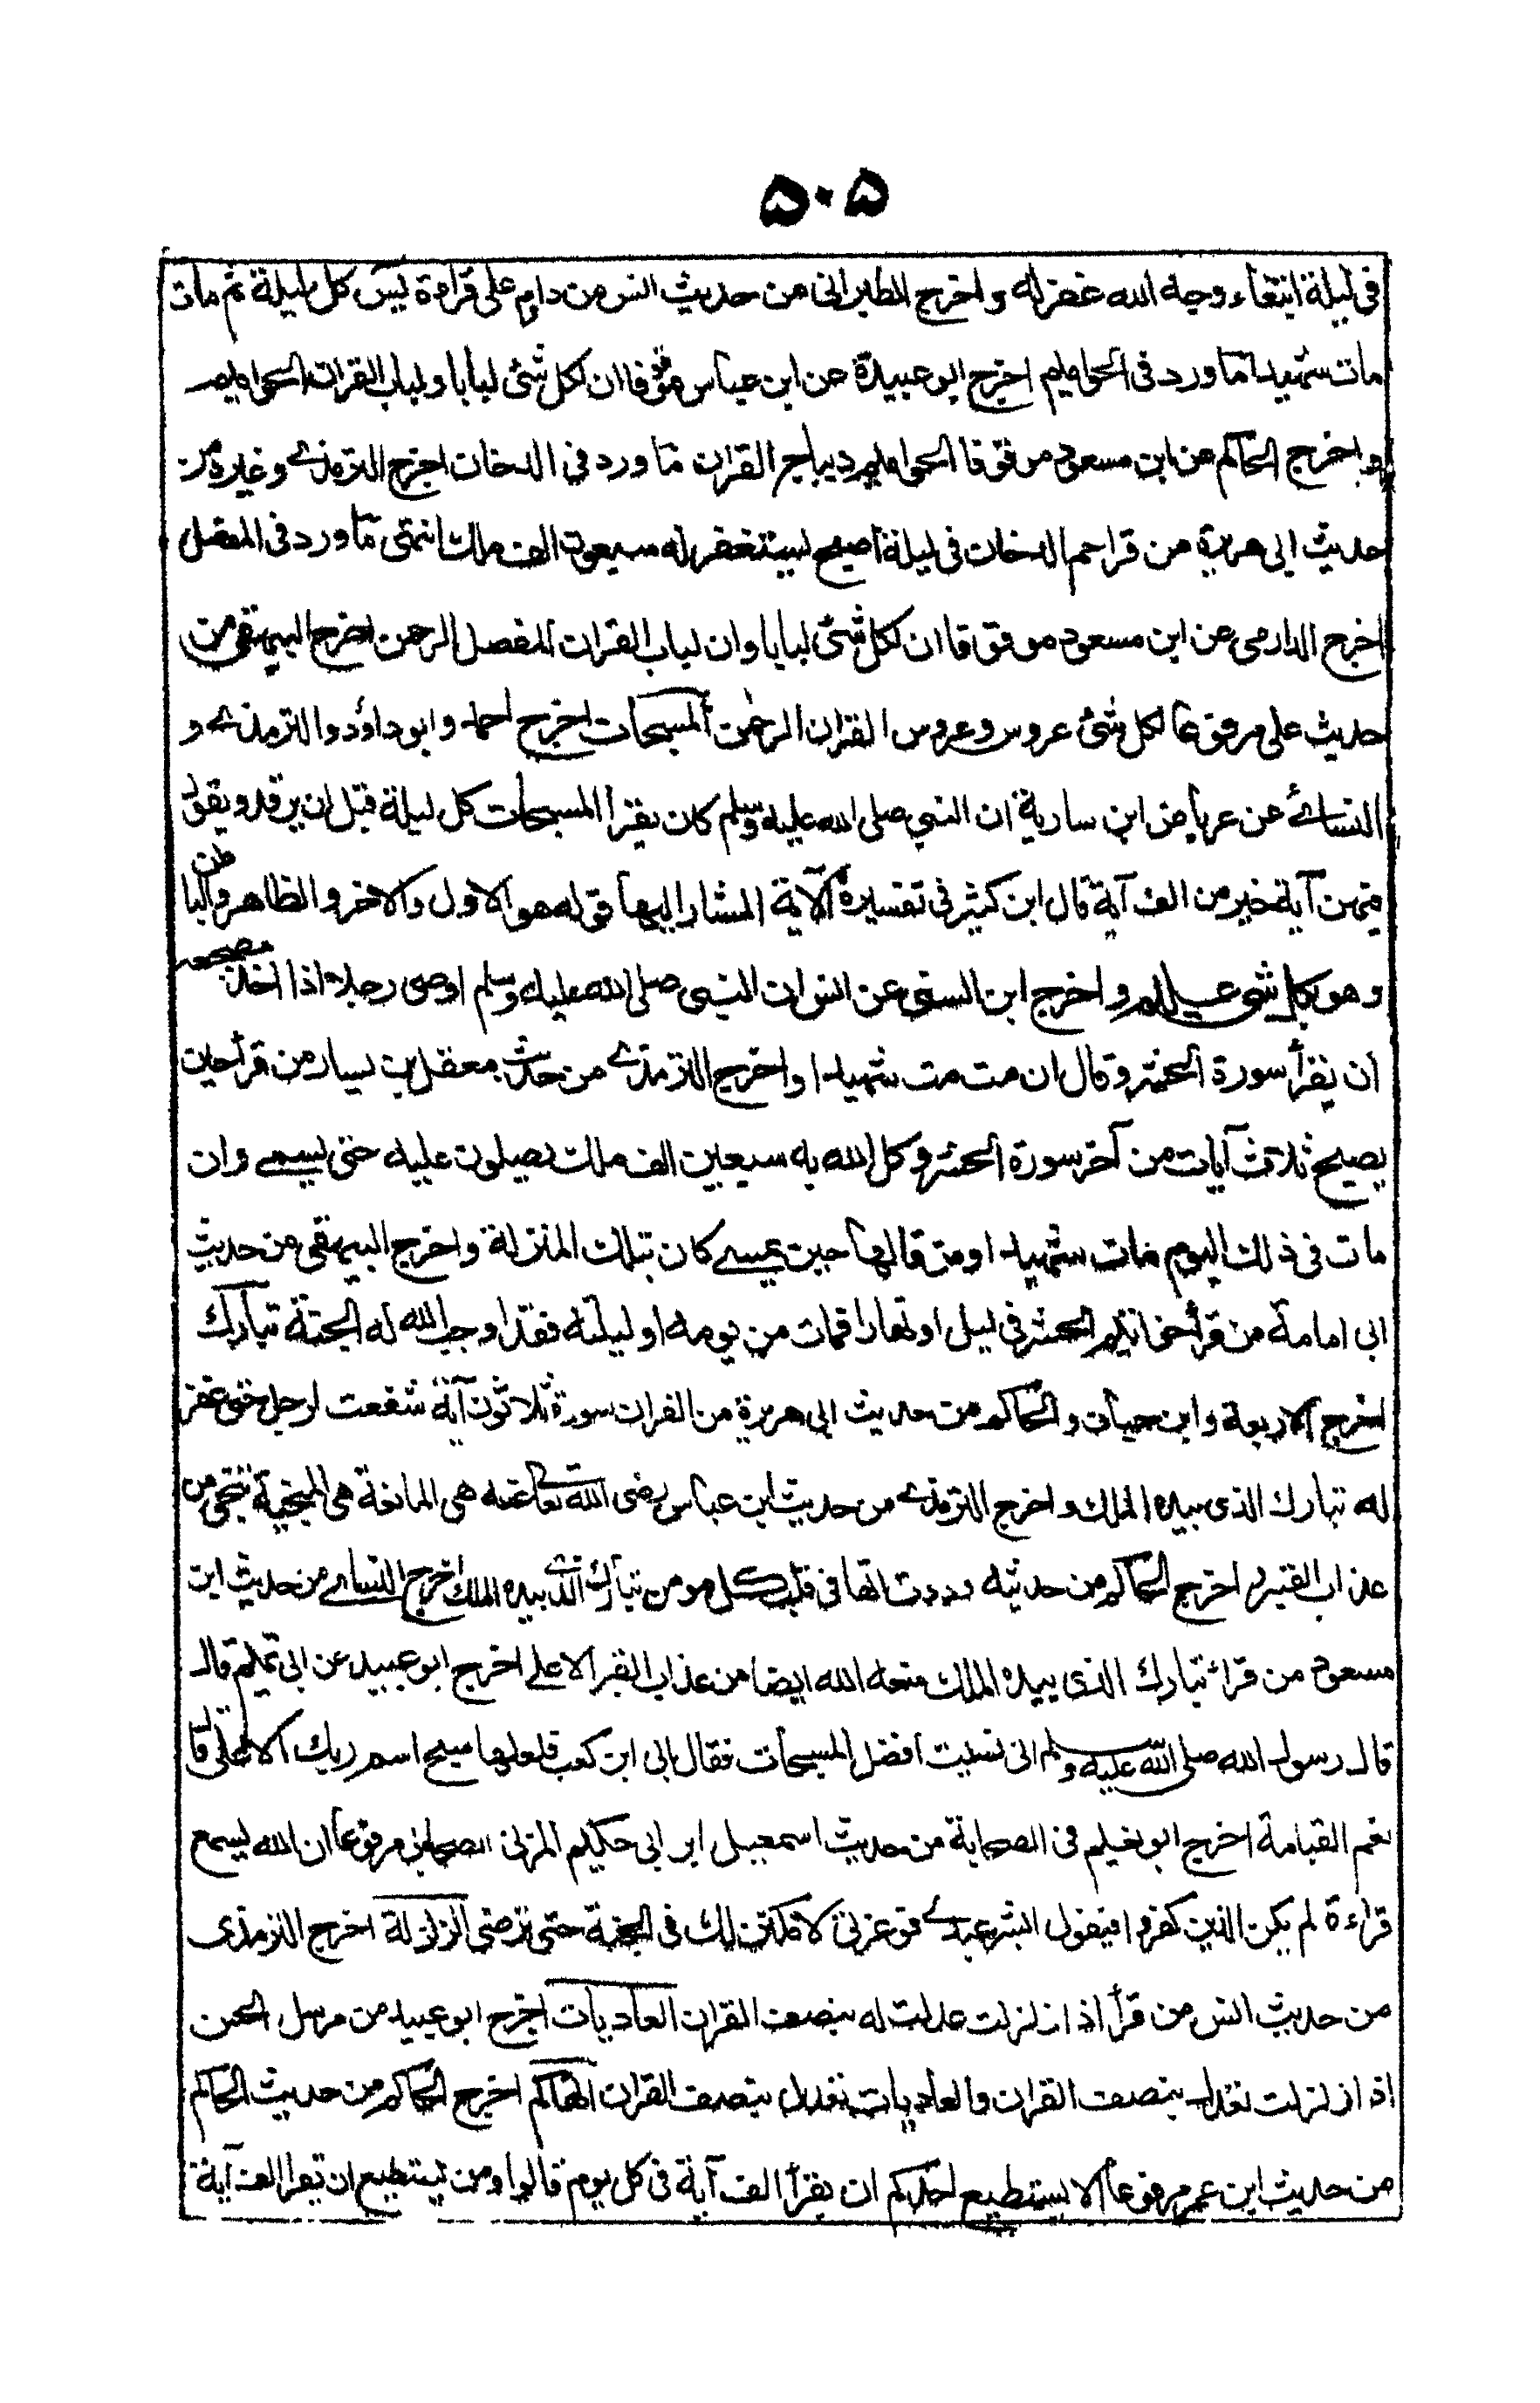 ۵۰۵
فی لیلة ابتغاء وجه الله غفر له واخرج الطبرانی من حدیث انس من داوم علی قراءة یٰس کل لیلة ثم مات
مات شهیدا ما ورد فی الحوامیم اخرج ابو عبیدة عن ابن عباس موقوفا ان لکل شئ لبابا ولباب القران الحوامیم
واخرج الحاکم عن ابن مسعود موقوفا الحوامیم دیباج القران ما ورد فی الدخان اخرج الترمذے وغیرہ من
حدیث ابی هریرة من قرا حم الدخان فی لیلة اصبح لیستغفر له سبعون الف ملک انتهی ما ورد فی المفصل
اخرج الدارمی عن ابن مسعود موقوفا ان لکل شئ لبابا وان لباب القران المفصل الرحمن اخرج البیهقی من
حدیث علی مرفوعا لکل شئ عروس وعروس القران الرحمٰن المسبحات اخرج احمد وابو داؤد والترمذے و
النسائے عن عرباض ابن ساریة ان النبی صلی الله علیه وسلم کان یقرأ المسبحات کل لیلة قبل ان یرقد ویقول
فیهن آیة خیر من الف آیة قال ابن کثیر فی تفسیرہ الآیة المشار الیها قوله هو الاول والاخر والظاهر والباطن
وهو بکل شی علیم واخرج ابن السنی عن انس ان النبی صلی الله علیه وسلم اوصی رجلا اذا اخذ مضجعه
ان یقرأ سورة الحشر وقال ان مت مت شهیدا واخرج الترمذے من حدیث معقل بن یسار من قرأ حین
یصبح ثلاث آیات من آخر سورة الحشر وکل الله به سبعین الف ملک یصلون علیه حتی یمسے وان
مات فی ذلک الیوم مات شهیدا ومن قالها حین یمسے کان بتلک المنزلة واخرج البیهقی من حدیث
ابی امامة من قرأ خواتیم الحشر فی لیل او نهار فمات من یومه او لیلته فقد اوجب الله له الجنة تبارک
اخرج الاربعة وابن حبان والحاکم من حدیث ابی هریرة من القران سورة ثلاثون آیة شفعت لرجل حتی غفر
له تبارک الذی بیده الملک واخرج الترمذے من حدیث ابن عباس رضی الله تعالی عنه هی المانعة هی المنجیة تنجی من
عذاب القبر واخرج الحاکم من حدیثه وددت انها فی قلب کل مومن تبارک الذی بیده الملک اخرج النسائے من حدیث ابن
مسعود من قراء تبارک الذی بیده الملک منعه الله ایضا من عذاب القبر الاعلے اخرج ابو عبید عن ابی تمیم قال
قال رسول الله صلی الله علیه وسلم انی نسیت افضل المسبحات فقال ابی ابن کعب فلعلها سبح اسم ربک الاعلی قال
نعم القیامة اخرج ابو نعیم فی الصحابة من حدیث اسمعیل ابن ابی حکیم المزنی الصحابی مرفوعا ان الله یسمع
قراءة لم یکن الذین کفروا فیقول ابشر عبدے فوعزتی لامکنن لک فی الجنة حتی ترضی الزلزلة اخرج الترمذی
من حدیث انس من قرأ اذا زلزلت عدلت له بنصف القران العادیات اخرج ابو عبید من مرسل الحسن
اذا زلزلت تعدل بنصف القران والعادیات تعدل بنصف القران الهاکم اخرج الحاکم من حدیث الحاکم
من حدیث ابن عمر مرفوعا الا یستطیع احدکم ان یقرأ الف آیة فی کل یوم قالوا ومن یستطیع ان یقرا الف آیة